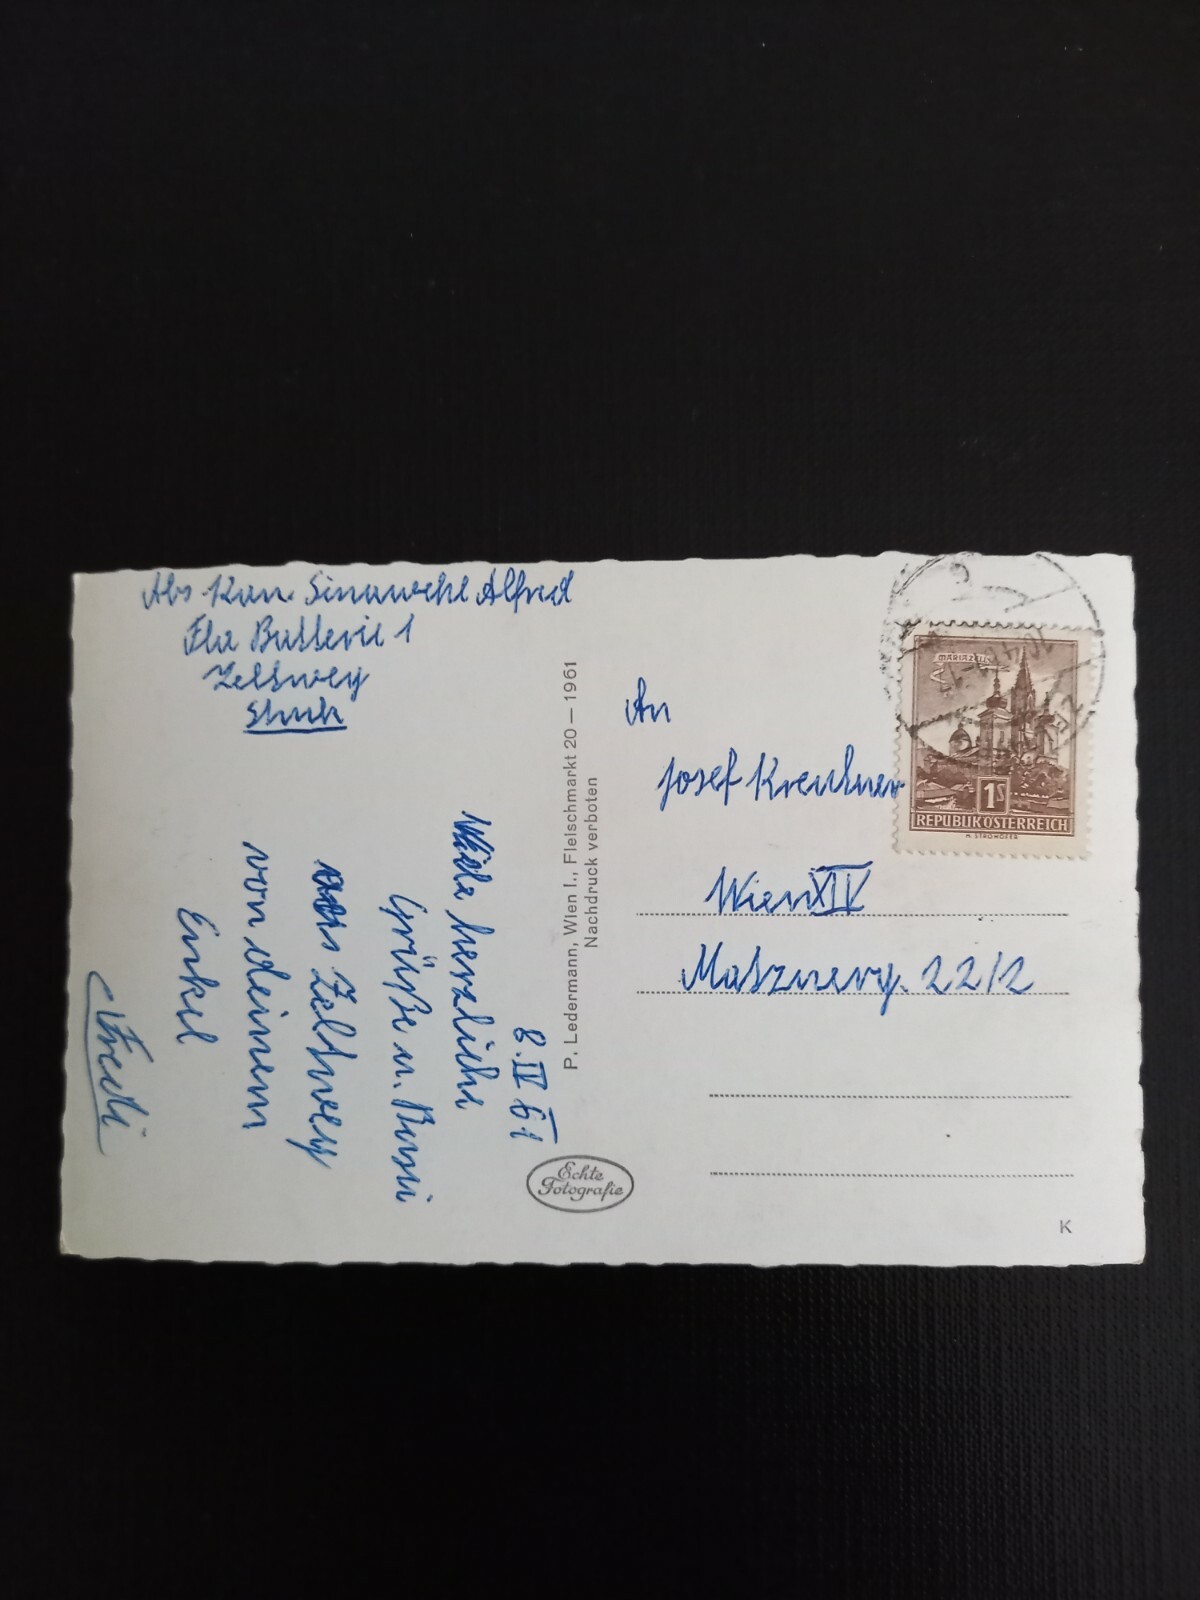 Abs Kan. Sinawehl Alfred
Fla Batterie 1
Zeltweg
Stmk
8.IV 61
Viele herzliche
Grüße u. Bussi
aus Zeltweg
von deinem
Enkel
Fredi
P. Ledermann, Wien I., Fleischmarkt 20 — 1961
Nachdruck verboten
Echte
Fotografie
An
Josef Kreutner
Wien XIV
Matznerg. 22/2
MARIAZELL
1S
REPUBLIK ÖSTERREICH
H. STROHOFER
K